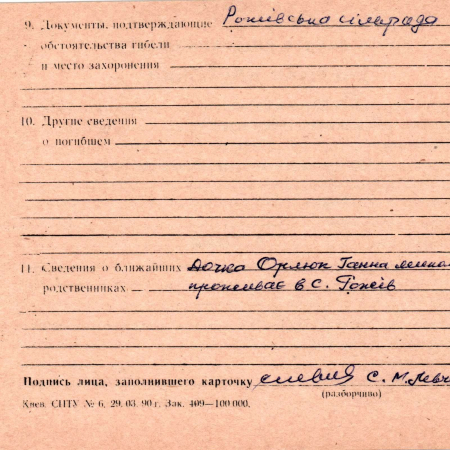 9. Документы, подтверждающие Рожівська сільрада
обстоятельства гибели
и место захоронения
10. Другие сведения
о погибшем
11. Сведения о ближайших дочка Орлюк Ганна
родственниках проживає в с. Рожів
Подпись лица, заполнившего карточку С. М. Левч
(разборчиво)
Киев. СПТУ № 6, 29. 03. 90 г. Зак. 409—100 000.